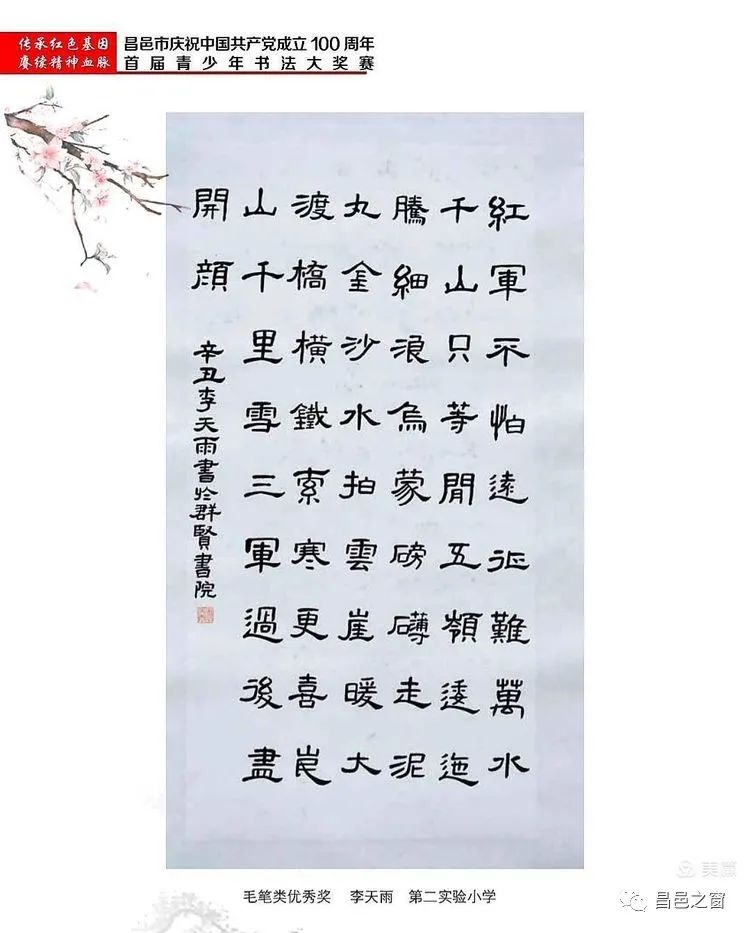 传承红色基因
赓续精神血脉
昌邑市庆祝中国共产党成立100周年
首届青少年书法大奖赛
紅軍不怕遠征難萬水
千山只等閒五嶺逶迤
騰細浪烏蒙磅礴走泥
丸金沙水拍雲崖暖大
渡橋橫鐵索寒更喜岷
山千里雪三軍過後盡
開顔
辛丑李天雨書於群賢書院
毛笔类优秀奖 李天雨 第二实验小学
美篇
昌邑之窗